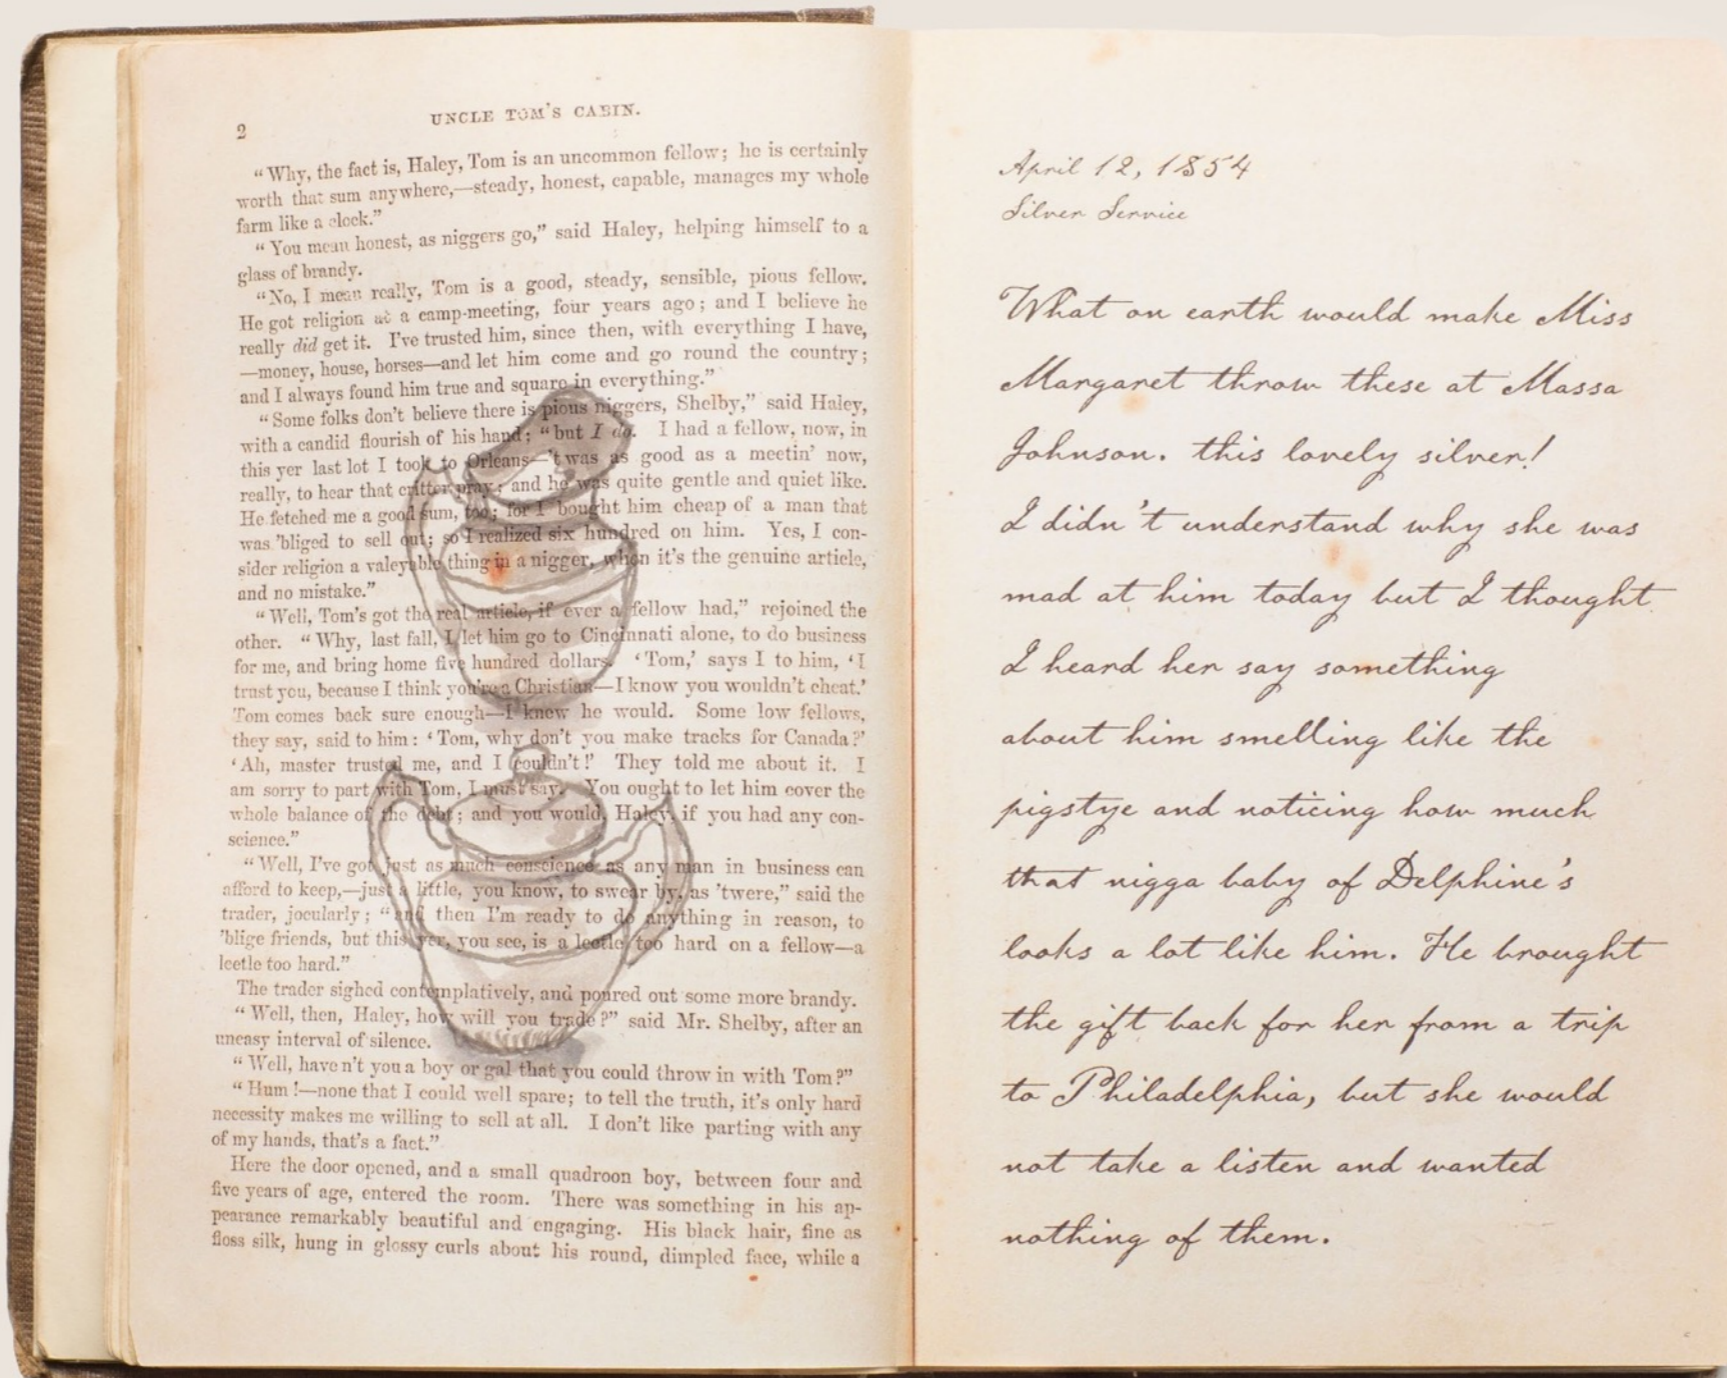 2
UNCLE TOM'S CABIN.
“Why, the fact is, Haley, Tom is an uncommon fellow; he is certainly
worth that sum anywhere,—steady, honest, capable, manages my whole
farm like a clock.”
“You mean honest, as niggers go,” said Haley, helping himself to a
glass of brandy.
“No, I mean really, Tom is a good, steady, sensible, pious fellow.
He got religion at a camp-meeting, four years ago; and I believe he
really did get it. I've trusted him, since then, with everything I have,
—money, house, horses—and let him come and go round the country;
and I always found him true and square in everything.”
“Some folks don't believe there is pious niggers, Shelby,” said Haley,
with a candid flourish of his hand; “but I do. I had a fellow, now, in
this yer last lot I took to Orleans—'t was as good as a meetin' now,
really, to hear that critter pray; and he was quite gentle and quiet like.
He fetched me a good sum, too; for I bought him cheap of a man that
was 'bliged to sell out; so I realized six hundred on him. Yes, I con-
sider religion a valeyable thing in a nigger, when it's the genuine article,
and no mistake.”
“Well, Tom's got the real article, if ever a fellow had,” rejoined the
other. “Why, last fall, I let him go to Cincinnati alone, to do business
for me, and bring home five hundred dollars. ‘Tom,’ says I to him, ‘I
trust you, because I think you're a Christian—I know you wouldn't cheat.’
Tom comes back sure enough—I knew he would. Some low fellows,
they say, said to him: ‘Tom, why don't you make tracks for Canada?’
‘Ah, master trusted me, and I couldn't!’ They told me about it. I
am sorry to part with Tom, I must say. You ought to let him cover the
whole balance of the debt; and you would, Haley, if you had any con-
science.”
“Well, I've got just as much conscience as any man in business can
afford to keep,—just a little, you know, to swear by, as 'twere,” said the
trader, jocularly; “and then I'm ready to do anything in reason, to
'blige friends, but this yer, you see, is a leetle too hard on a fellow—a
leetle too hard.”
The trader sighed contemplatively, and poured out some more brandy.
“Well, then, Haley, how will you trade?” said Mr. Shelby, after an
uneasy interval of silence.
“Well, haven't you a boy or gal that you could throw in with Tom?”
“Hum!—none that I could well spare; to tell the truth, it's only hard
necessity makes me willing to sell at all. I don't like parting with any
of my hands, that's a fact.”
Here the door opened, and a small quadroon boy, between four and
five years of age, entered the room. There was something in his ap-
pearance remarkably beautiful and engaging. His black hair, fine as
floss silk, hung in glossy curls about his round, dimpled face, while a
April 12, 1854
Silver Service
What on earth would make Miss
Margaret throw these at Massa
Johnson. this lovely silver!
I didn't understand why she was
mad at him today but I thought
I heard her say something
about him smelling like the
pigstye and noticing how much
that nigga baby of Delphine's
looks a lot like him. He brought
the gift back for her from a trip
to Philadelphia, but she would
not take a listen and wanted
nothing of them.